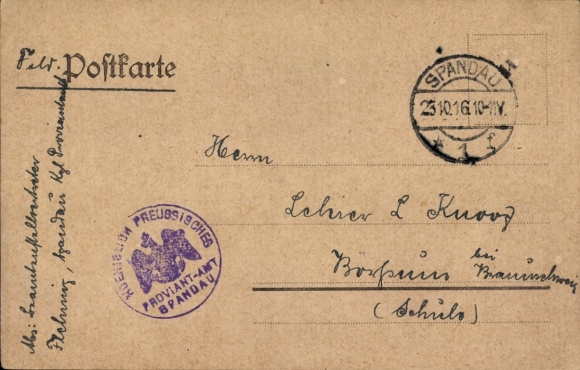 Feld Postkarte
SPANDAU
23.10.16.10-11V.
* 1 f
Herrn
Lehrer L Knoop
Börssum bei Braunschweig
(Schule)
KOENIGLICH PREUSSISCHES
PROVIANT-AMT
SPANDAU
Abs:
Spandau Kgl Proviantamt